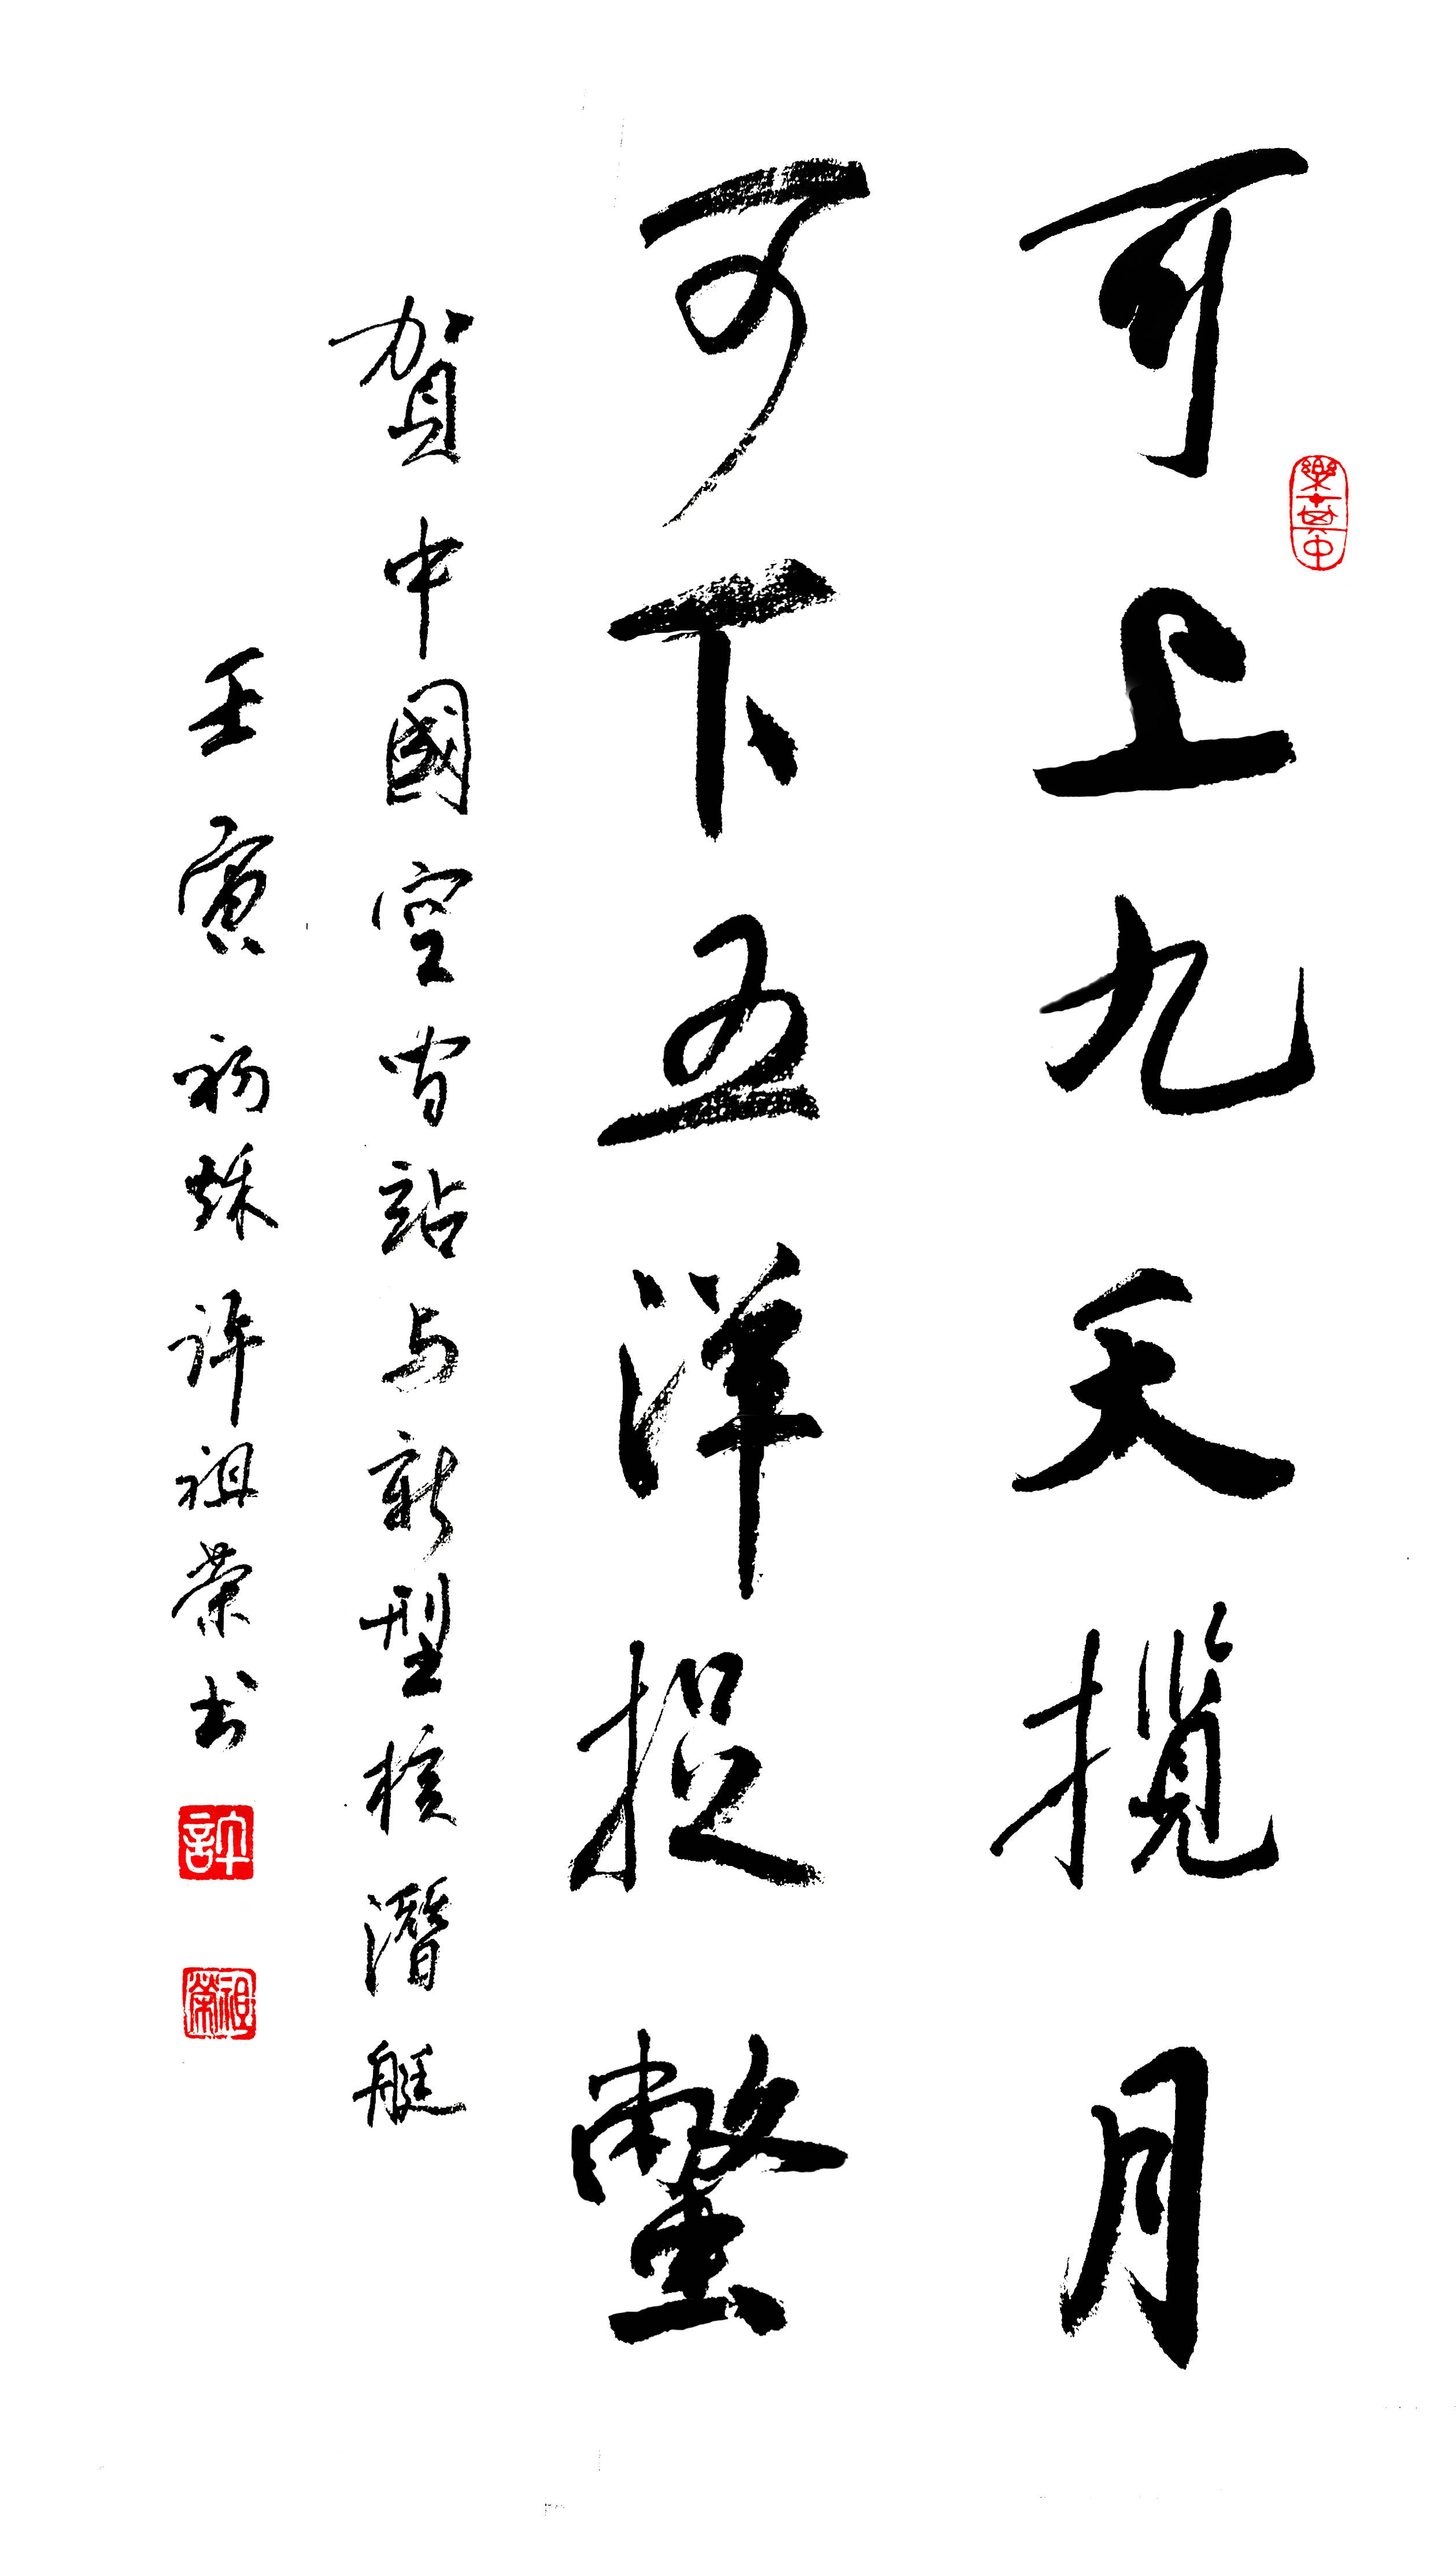 可上九天揽月
可下五洋捉鳖
賀中國空间站与新型核潛艇
壬寅初秌许祖荣书
樂其中
許
祖榮